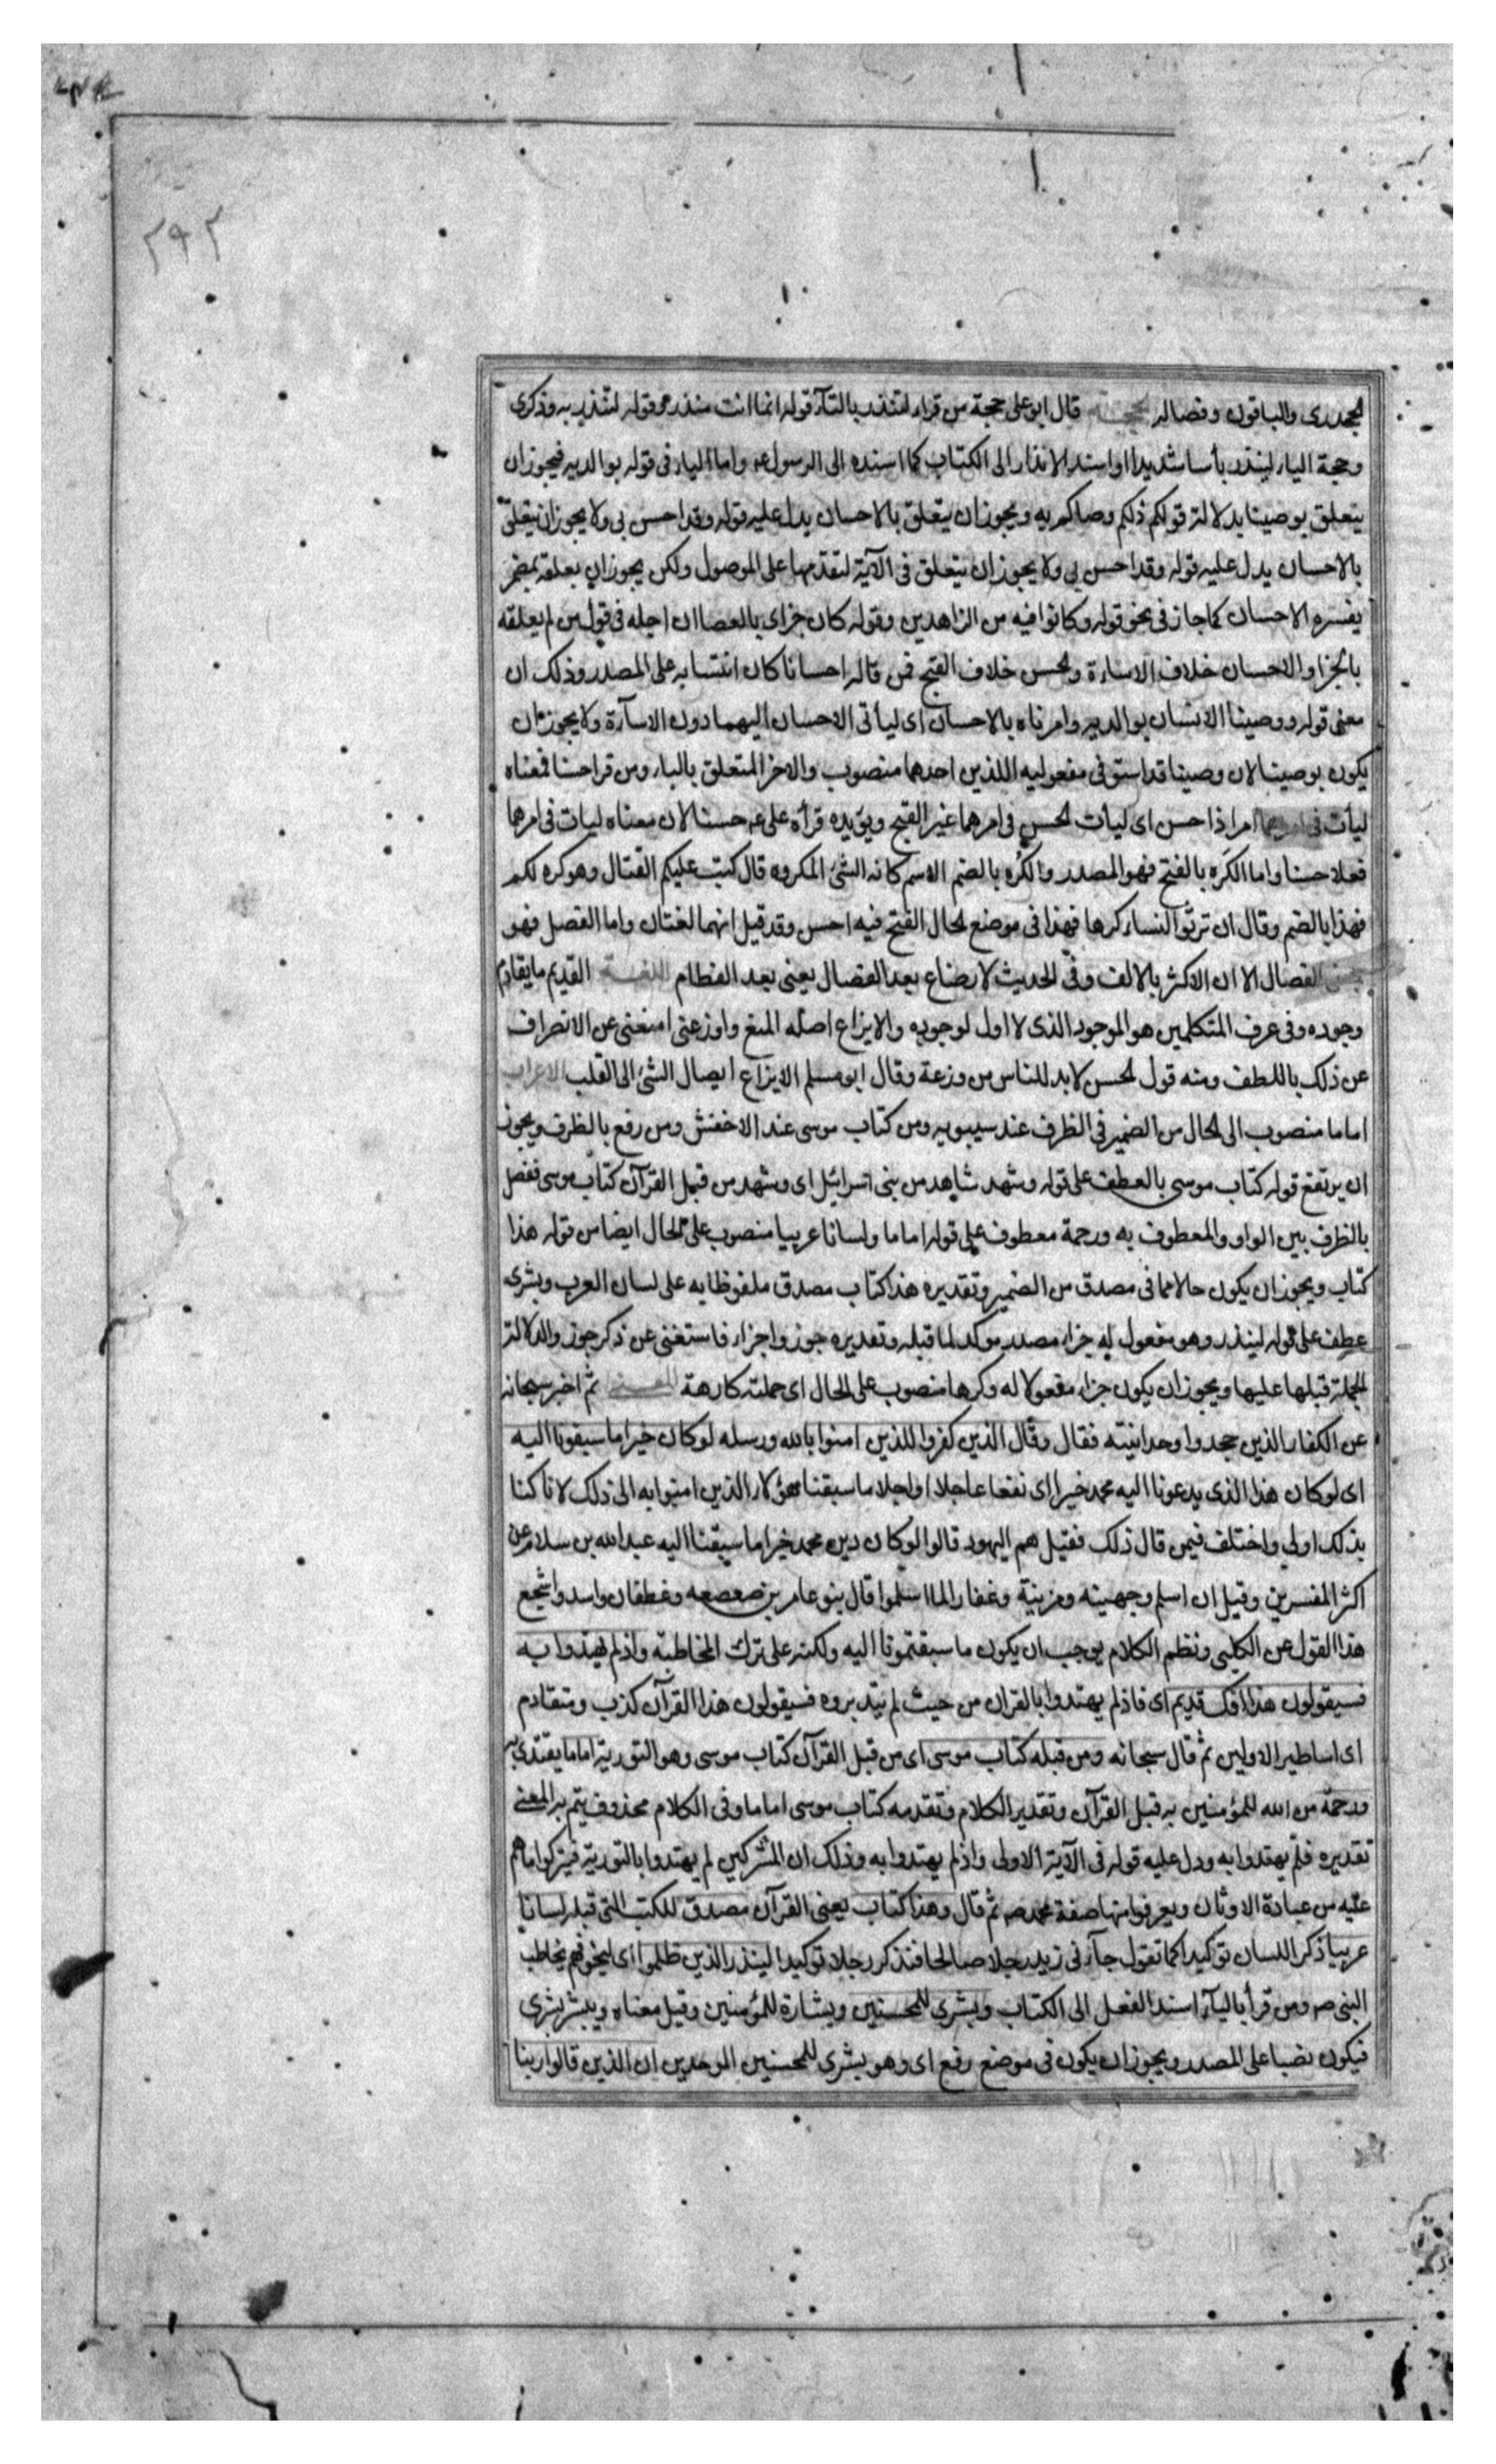 ۲۹۲
الجحدری والباقون وفصاله الحجة قال ابو علی حجة من قراء لتنذر بالتآء قوله انما انت منذر وقوله لتنذر به وذکری
وحجة الیاء لینذر بأسا شدیدا او اسند الانذار الی الکتاب کما اسنده الی الرسول ع واما الباء فی قوله بوالدیه فیجوز ان
یتعلق بوصینا بدلالة قولکم ذلکم وصاکم به ویجوز ان یتعلق بالاحسان یدل علیه قوله وقد احسن بی ولا یجوز ان یتعلق
بالاحسان یدل علیه قوله وقد احسن بی ولا یجوز ان یتعلق فی الآیة لتقدمها علی الموصول ولکن یجوز ان یعلقه بمضمر
یفسره الاحسان کما جاز فی نحو قوله وکانوا فیه من الزاهدین وقوله کان جزای بالعصا ان اجلد فی قول من لم یعلقه
بالجزاء والاحسان خلاف الاساءة والحسن خلاف القبح فمن قال احسانا کان انتسابه علی المصدر وذلک ان
معنی قوله ووصینا الانسان بوالدیه وامرناه بالاحسان ای لیأتی الاحسان الیهما دون الاسآءة ولا یجوز ان
یکون بوصینا لان وصینا قد استوفی مفعولیه اللذین احدهما منصوب والاخر المتعلق بالباء ومن قرا حسنا فمعناه
لیأت فی امرهما امرا ذا حسن ای لیأت الحسن فی امرهما غیر القبح ویؤیده قرأة علی ع حسنا لان معناه لیات فی امرهما
فعلا حسنا واما الکَره بالفتح فهو المصدر والکُره بالضم الاسم کانه الشئ المکروه قال کتب علیکم القتال وهو کره لکم
فهذا بالضم وقال ان ترثوا النساء کرها فهذا فی موضع الحال الفتح فیه احسن وقد قیل انهما لغتان واما الفصل فهو
بمعنی الفصال الا ان الاکثر بالالف وفی الحدیث لا رضاع بعد الفصال یعنی بعد الفطام اللغة القدیم ما یقادم
وجوده وفی عرف المتکلمین هو الموجود الذی لا اول لوجوده والایزاع اصله المنع واوزعنی امنعنی عن الانصراف
عن ذلک باللطف ومنه قول الحسن لابد للناس من وزعة وقال ابو مسلم الایزاع ایصال الشئ الی القلب الاعراب
اماما منصوب الی الحال من الضمیر فی الظرف عند سیبویه ومن کتاب موسی عند الاخفش ومن رفع بالظرف ویجوز
ان یرتفع قوله کتاب موسی بالعطف علی قوله وشهد شاهد من بنی اسرائیل ای وشهد من قبل القرآن کتاب موسی ففصل
بالظرف بین الواو والمعطوف به ورحمة معطوف علی قوله اماما ولسانا عربیا منصوب علی الحال ایضا من قوله هذا
کتاب ویجوز ان یکون حالا مما فی مصدق من الضمیر وتقدیره هذا کتاب مصدق ملفوظا به علی لسان العرب وبشری
عطف علی قوله لینذر وهو مفعول له جزاء مصدر موکد لما قبله وتقدیره جوزوا جزاء فاستغنی عن ذکر جوزوا لدلالة
الجملة قبلها علیها ویجوز ان یکون جزاء مفعولا له وکرها منصوب علی الحال ای حملته کارهة المعنی ثم اخبر سبحانه
عن الکفار الذین جحدوا وحدانیته فقال وقال الذین کفروا للذین امنوا بالله ورسله لو کان خیرا ما سبقونا الیه
ای لو کان هذا الذی یدعونا الیه محمد خیرا ای نفعا عاجلا او اجلا ما سبقنا هؤلاء الذین امنوا به الی ذلک لانا کنا
بذلک اولی واختلف فیمن قال ذلک فقیل هم الیهود قالوا لو کان دین محمد خیرا ما سبقنا الیه عبدالله بن سلام عن
اکثر المفسرین وقیل ان اسلم وجهینه ومزینة وغفار لما اسلموا قال بنو عامر بن صعصعه وغطفان واسد واشجع
هذا القول عن الکلبی ونظم الکلام یوجب ان یکون ما سبقتمونا الیه ولکنه علی ترک المخاطبة واذ لم یهتدوا به
فسیقولون هذا افک قدیم ای فاذ لم یهتدوا بالقران من حیث لم یتدبروه فسیقولون هذا القرآن کذب ومتقادم
ای اساطیر الاولین ثم قال سبحانه ومن قبله کتاب موسی ای من قبل القرآن کتاب موسی وهو التوریة اماما یقتدی به
ورحمة من الله للمؤمنین به قبل القرآن وتقدیر الکلام وتقدمه کتاب موسی اماما وفی الکلام محذوف یتم به المعنی
تقدیره فلم یهتدوا به ودل علیه قوله فی الآیة الاولی واذ لم یهتدوا به وذلک ان المشرکین لم یهتدوا بالتوریة فیترکوا ما هم
علیه من عبادة الاوثان ویعرفوا منها صفة محمد ص ثم قال وهذا کتاب یعنی القرآن مصدق للکتب التی قبله لسانا
عربیا ذکر اللسان توکیدا کما تقول جآءنی زید رجلا صالحا فتذکر رجلا توکیدا لینذر الذین ظلموا ای لیخوفهم یخاطب
النبی ص ومن قرأ بالیآء اسند الفعل الی الکتاب وبشری للمحسنین وبشارة للمؤمنین وقیل معناه ویبشر بشری
فیکون نصبا علی المصدر ویجوز ان یکون فی موضع رفع ای وهو بشری للمحسنین الموحدین ان الذین قالوا ربنا